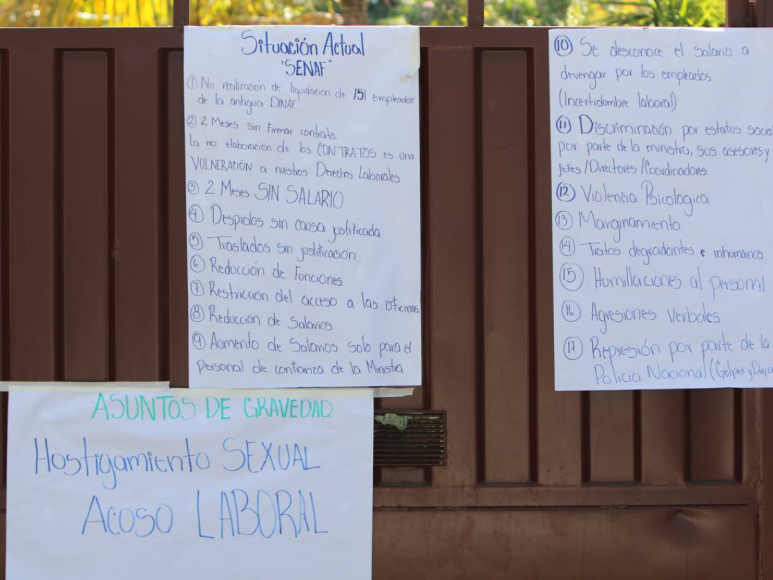 Situación Actual
"SENAF"
① No realización de liquidación de 151 empleados
de la antigua DINAF
② 2 Meses sin firmar contrato.
la no elaboración de los CONTRATOS es una
VULNERACIÓN a nuestros Derechos Laborales
③ 2 Meses SIN SALARIO
④ Despidos sin causa justificada
⑤ Traslados sin justificación
⑥ Reducción de Funciones
⑦ Restricción del acceso a las oficinas
⑧ Reducción de Salarios
⑨ Aumento de Salarios solo para el
Personal de confianza de la Ministra
⑩ Se desconoce el salario a
devengar por los empleados
(Incertidumbre laboral)
⑪ Discriminación por estatus social
por parte de la ministra, sus asesores y
jefes/Directores/Coordinadores
⑫ Violencia Psicologica
⑬ Marginamiento
⑭ Tratos degradantes e inhumanos
⑮ Humillaciones al personal
⑯ Agresiones verbales
⑰ Represión por parte de la
Policia Nacional (Golpes y
ASUNTOS DE GRAVEDAD
Hostigamiento SEXUAL
Acoso LABORAL